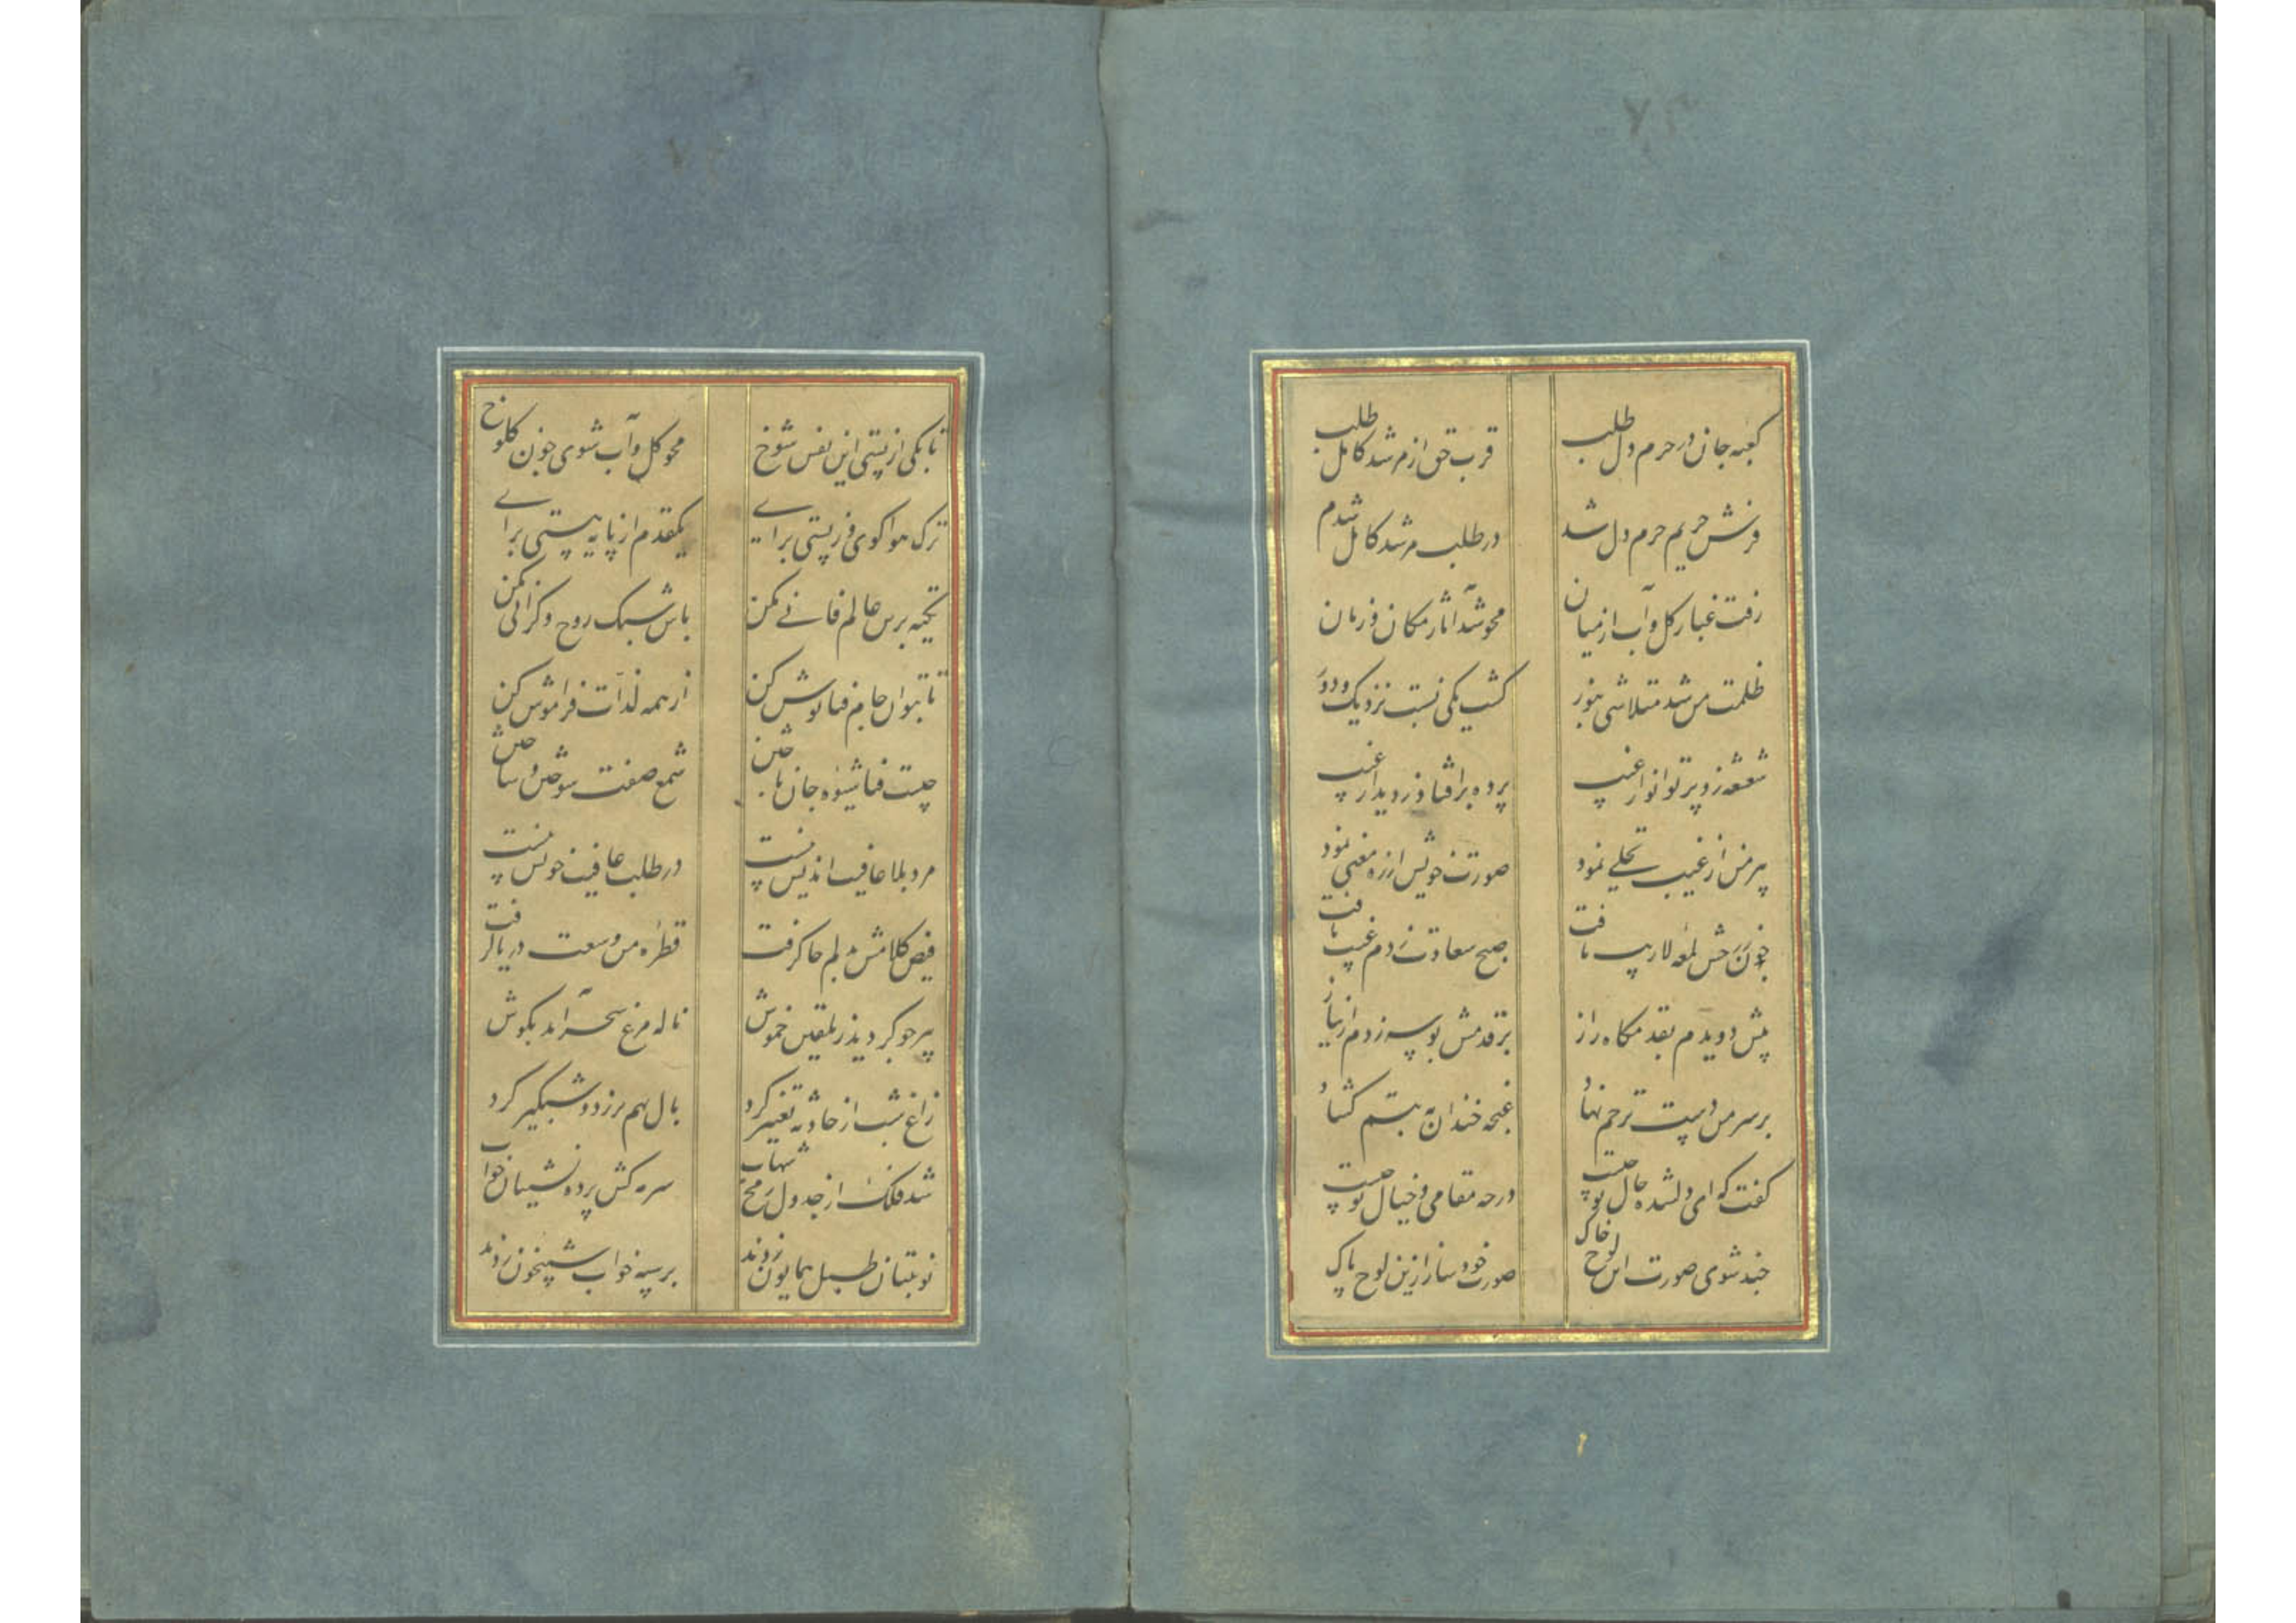 ۷۳
کعبه جان در حرم دل طلب
قرب حق از مرشد کامل طلب
فرش حریم حرم دل شدم
در طلب مرشد کامل شدم
رفت غبار گل و آب از میان
محو شد آثار مکان و زمان
ظلمت من شد متلاشی بنور
گشت یکی نسبت نزدیک و دور
شعشعه زد پرتو انوار غیب
پرده برافتاد ز دیدار غیب
پیر من از غیب تجلی نمود
صورت خویش از ره معنی نمود
چون رخش لمعه لاریب یافت
صبح سعادت ز دم غیب یافت
پیش دویدم بقدمگاه راز
بر قدمش بوسه زدم از نیاز
بر سر من دست ترحم نهاد
غنچه خندان تبسم گشاد
گفت که ای دلشده حال تو چیست
در چه مقامی و خیال تو چیست
چند شوی صورت این لوح خاک
صورت خود ساز ازین لوح پاک
تا بکی از پستی این نفس شوخ
محو گل و آب شوی چون کلوخ
ترک هوا گوی و ز پستی برای
یکقدم از پایه پستی برای
تکیه برین عالم فانی مکن
باش سبک روح و گرانی مکن
تا بتوان جام فنا نوش کن
از همه لذات فراموش کن
چیست فنا شیوه جان باختن
شمع صفت سوختن و ساختن
مرد بلا عافیت اندیش نیست
در طلب عافیت خویش نیست
فیض کلامش بدلم جا گرفت
قطره من وسعت دریا گرفت
پیر چو گردید ز تلقین خموش
ناله مرغ سحر آمد بگوش
زاغ شب از حادثه تغییر کرد
بال بهم برزد و شبگیر کرد
شد فلک از جدول رمح شهاب
سرمه کش پرده نشینان خواب
نوبتیان طبل همایون زدند
بر سپه خواب شبیخون زدند